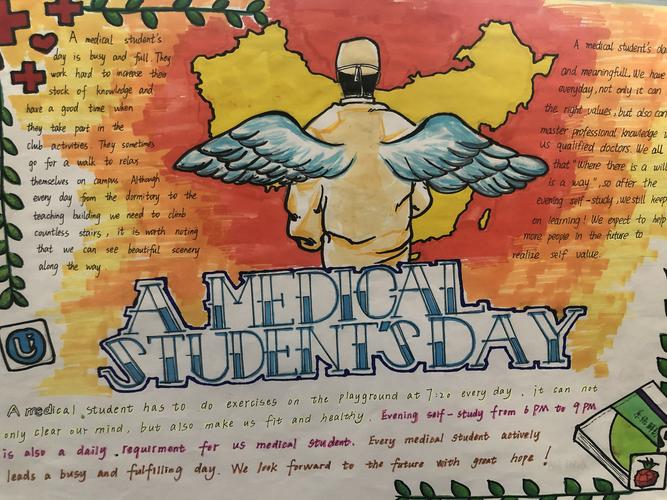 A medical student's
day is busy and full. They
work hard to increase their
stock of knowledge and
have a good time when
they take part in the
club activities. They sometimes
go for a walk to relax
themselves on campus. Although
every day from the dormitory to the
teaching building we need to climb
countless stairs, it is worth noting
that we can see beautiful scenery
along the way
A medical student's da
and meaningfull. We have
everyday, not only it can
the right values, but also can
master professional knowledge
us qualified doctors. We all
that "Where there is a will
is a way", so after the
evening self-study, we still keep
on learning! We expect to help
more people in the future to
realize self value.
A MEDICAL
STUDENT'S DAY
A medical student has to do exercises on the playground at 7:20 every day, it can not
only clear our mind, but also make us fit and healthy. Evening self-study from 6 PM to 9 PM
is also a daily requirment for us medical student. Every medical student actively
leads a busy and fulfilling day. We look forward to the future with great hope!